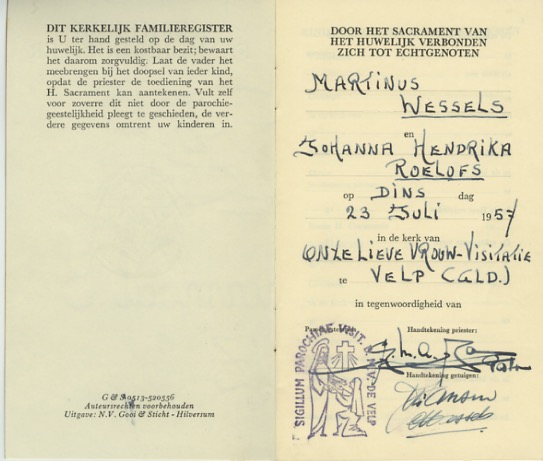 DIT KERKELIJK FAMILIEREGISTER
is U ter hand gesteld op de dag van uw
huwelijk. Het is een kostbaar bezit; bewaart
het daarom zorgvuldig. Laat de vader het
meebrengen bij het doopsel van ieder kind,
opdat de priester de toediening van het
H. Sacrament kan aantekenen. Vult zelf
voor zoverre dit niet door de parochie-
geestelijkheid pleegt te geschieden, de ver-
dere gegevens omtrent uw kinderen in.
G & S 0513-520556
Auteursrechten voorbehouden
Uitgave: N.V. Gooi & Sticht - Hilversum
DOOR HET SACRAMENT VAN
HET HUWELIJK VERBONDEN
ZICH TOT ECHTGENOTEN
MARTINUS
WESSELS
en
JOHANNA HENDRIKA
ROELOFS
op DINS dag
23 Juli 1957
in de kerk van
ONZE LIEVE VROUW-VISITATIE
te VELP (GLD.)
in tegenwoordigheid van
Handtekening priester:
SIGILLUM PAROCHIAE VISIT. B.M.V. DE VELP
Handtekening getuigen: